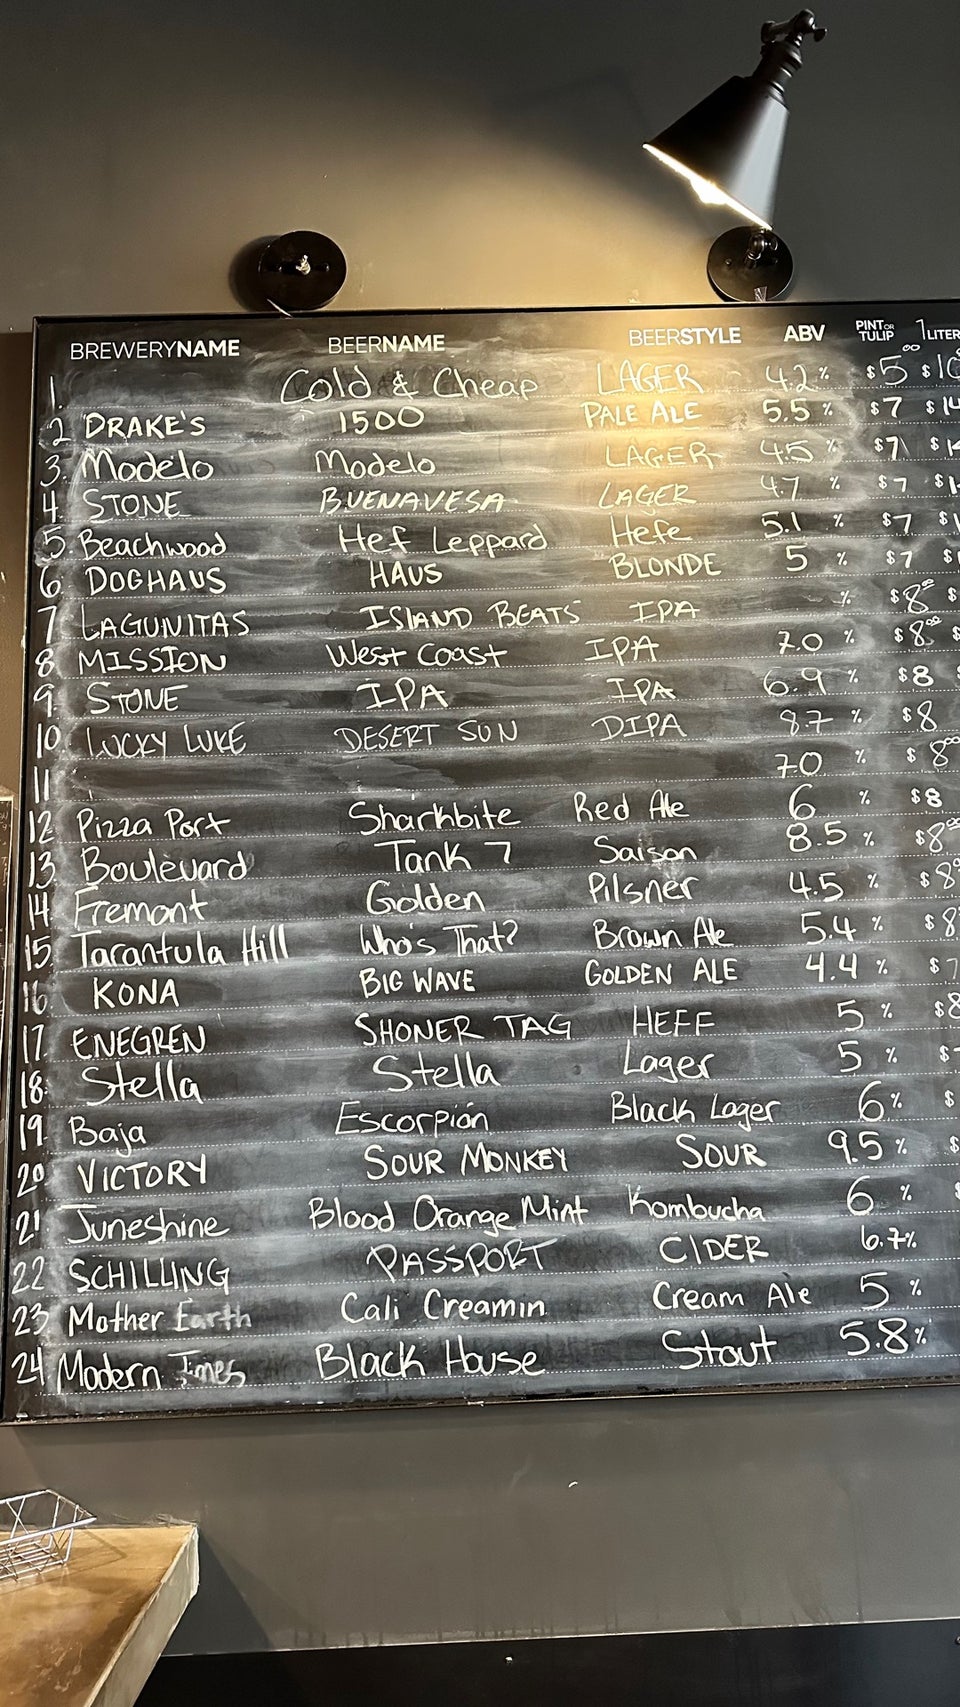 BREWERYNAME BEERNAME BEERSTYLE ABV PINT OR TULIP 1 LITER
1. Cold & Cheap LAGER 4.2% $5.00 $10
2 DRAKE'S 1500 PALE ALE 5.5% $7 $14
3. Modelo Modelo LAGER 4.5% $7 $14
4. STONE BUENAVESA LAGER 4.7% $7 $1
5. Beachwood Hef Leppard Hefe 5.1% $7 $1
6 DOGHAUS HAUS BLONDE 5% $7 $
7 LAGUNITAS ISLAND BEATS IPA % $8.00 $
8 MISSION West Coast IPA 7.0% $8.00 $
9. STONE IPA IPA 6.9% $8
10. LUCKY LUKE DESERT SUN DIPA 8.7% $8
11 7.0% $8.00
12 Pizza Port Sharkbite Red Ale 6% $8
13. Boulevard Tank 7 Saison 8.5% $8.00
14. Fremont Golden Pilsner 4.5% $8
15. Tarantula Hill Who's That? Brown Ale 5.4% $8
16 KONA BIG WAVE GOLDEN ALE 4.4% $7
17. ENEGREN SHONER TAG HEFF 5% $8
18. Stella Stella Lager 5% $
19. Baja Escorpión Black Lager 6% $
20 VICTORY SOUR MONKEY SOUR 9.5% $
21 Juneshine Blood Orange Mint Kombucha 6% $
22 SCHILLING PASSPORT CIDER 6.7%
23 Mother Earth Cali Creamin Cream Ale 5%
24 Modern Times Black House Stout 5.8%